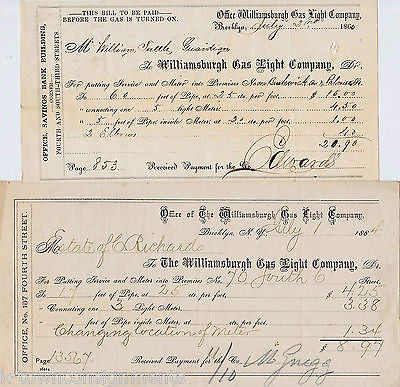 THIS BILL TO BE PAID
BEFORE THE GAS IS TURNED ON.
OFFICE, SAVINGS BANK BUILDING,
CORNER
FOURTH AND SOUTH-THIRD STREETS
Office Williamsburgh Gas Light Company,
Brooklyn, July 1860
Mr William Tuttle, Guardian
To Williamsburgh Gas Light Company, Dr.
For putting Service and Meter into Premises No.
To 62 feet of Pipe, at 25 cts. per foot, $ 15.00
" Connecting one 5 Light Meter, 4.50
" 5 feet of Pipe inside Meter, at 20 cts. per foot, 1.00
2 Elbows 40
20.90
Page 853 Received Payment for the Co. Edwards
OFFICE, No. 167 FOURTH STREET.
Office of The Williamsburgh Gas Light Company,
Brooklyn, N. Y. July 1 1884
M Estate of C Richards
To The Williamsburgh Gas Light Company, Dr.
For Putting Service and Meter into Premises No. 70 South 6 Street.
To 17 feet of Pipe, at 25 cts. per foot, $ 4.25
" Connecting one 3 Light Meter, 3.38
" feet of Pipe inside Meter, at cts. per foot,
Changing location of Meter 1.34
$ 8.97
Page 13567 Received Payment for the Co.
11/10
k-townconsignments